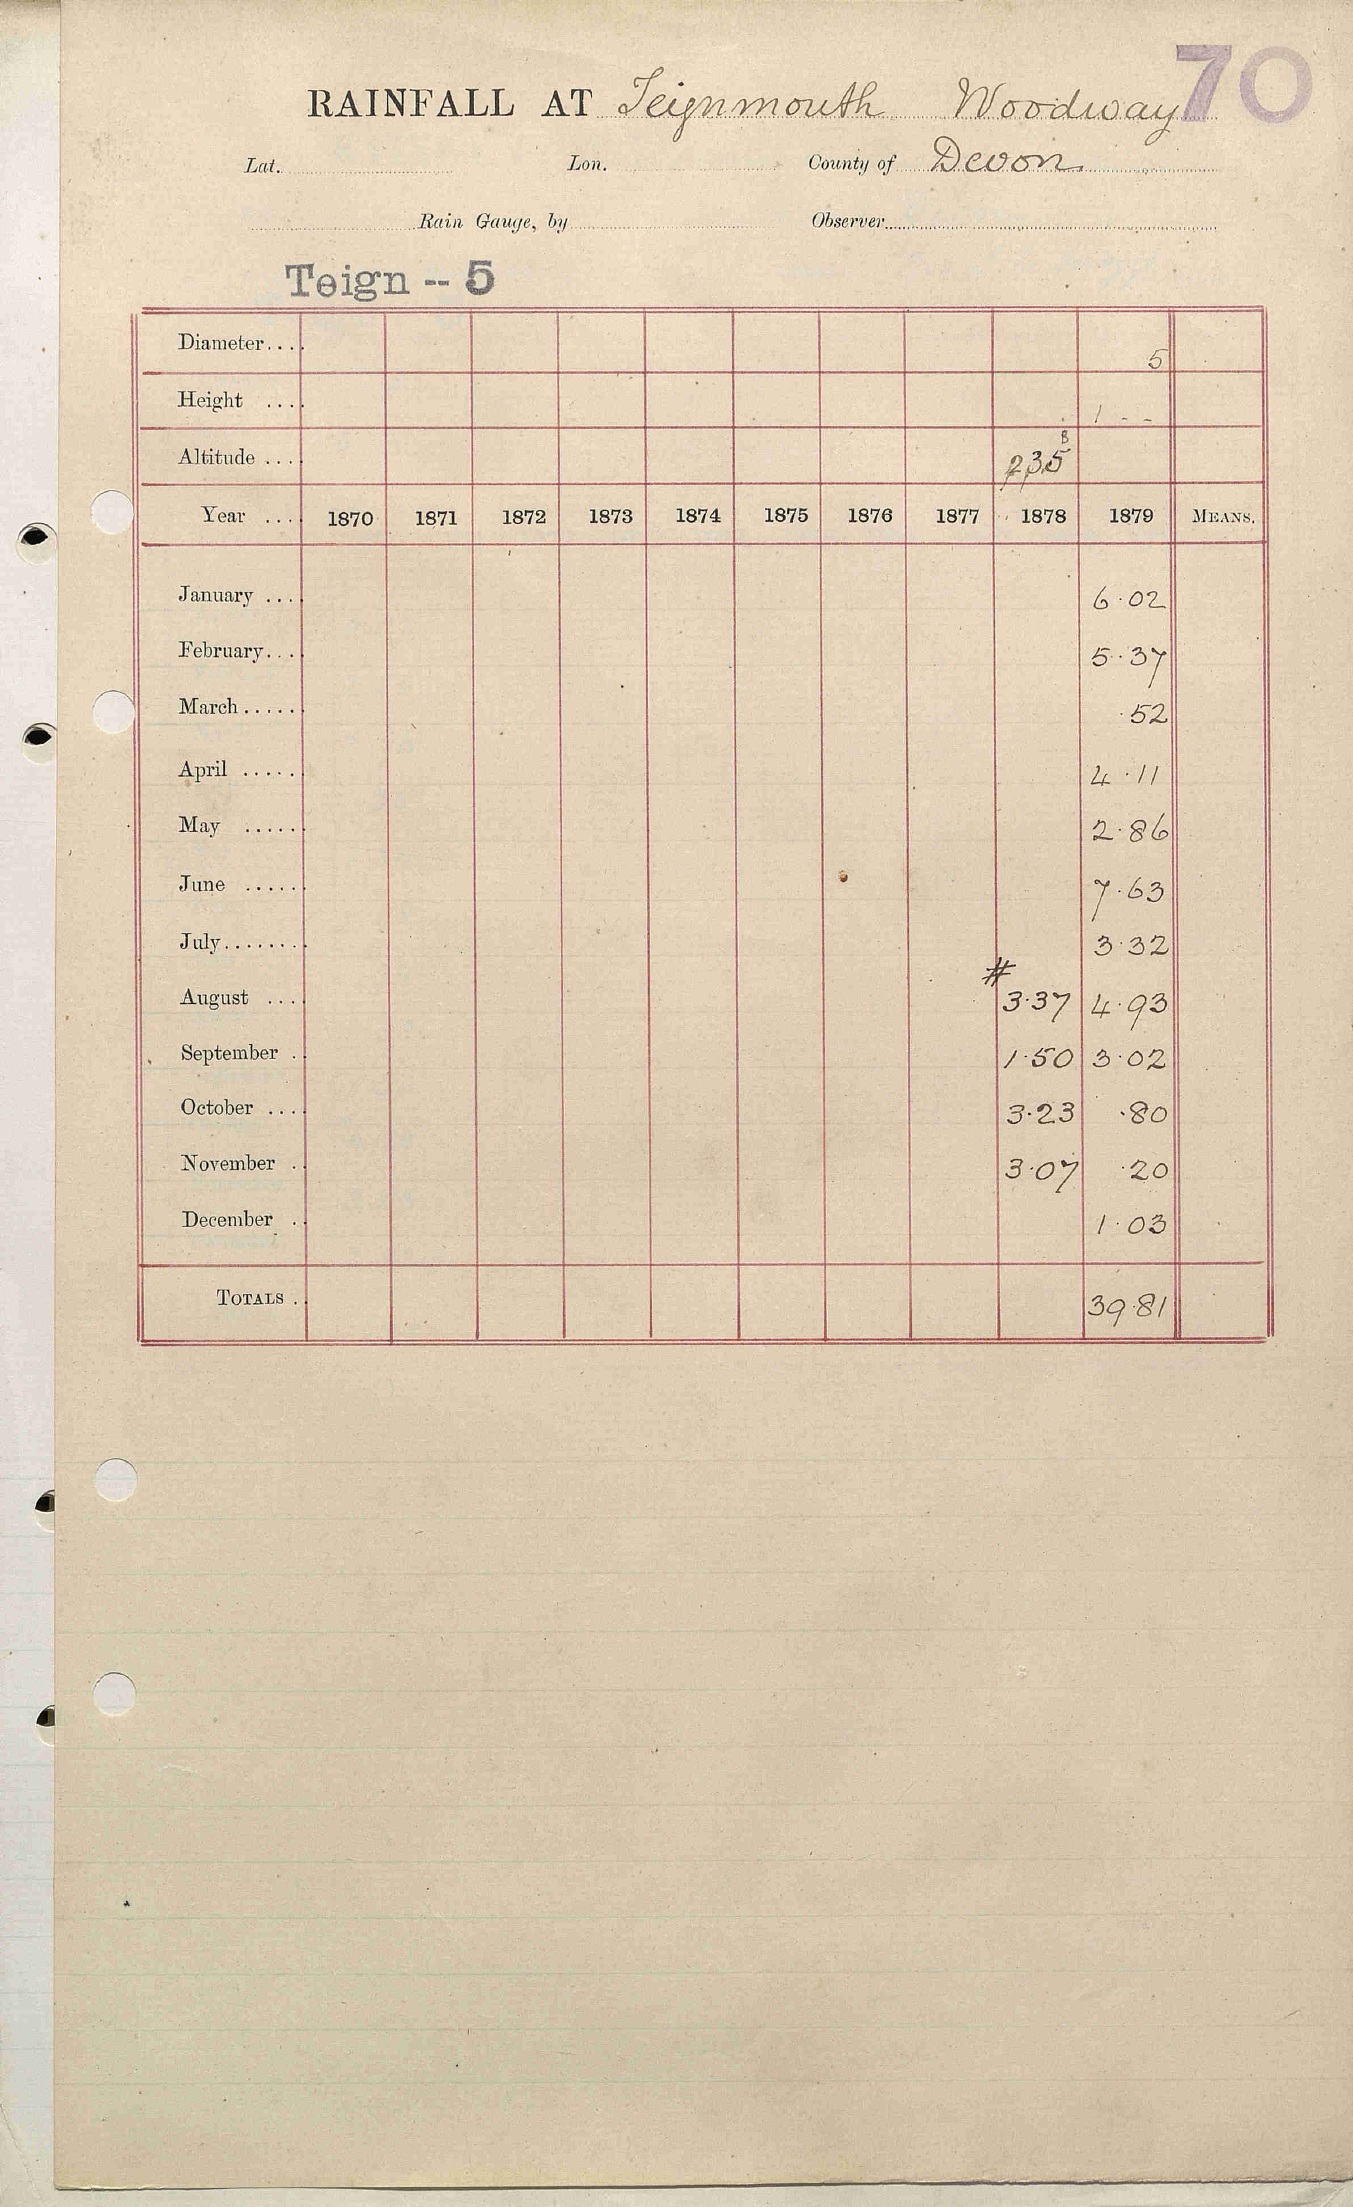 70
RAINFALL AT Teignmouth Woodway
Lat. Lon. County of Devon
Rain Gauge, by Observer
Teign -- 5
Diameter.... 5
Height .... 1 - -
Altitude .... 235 B
Year .... 1870 1871 1872 1873 1874 1875 1876 1877 1878 1879 MEANS.
January .... 6.02
February.... 5.37
March...... .52
April ...... 4.11
May ...... 2.86
June ...... 7.63
July........ 3.32
#
August .... 3.37 4.93
September .. 1.50 3.02
October .... 3.23 .80
November .. 3.07 .20
December .. 1.03
TOTALS .. 39.81